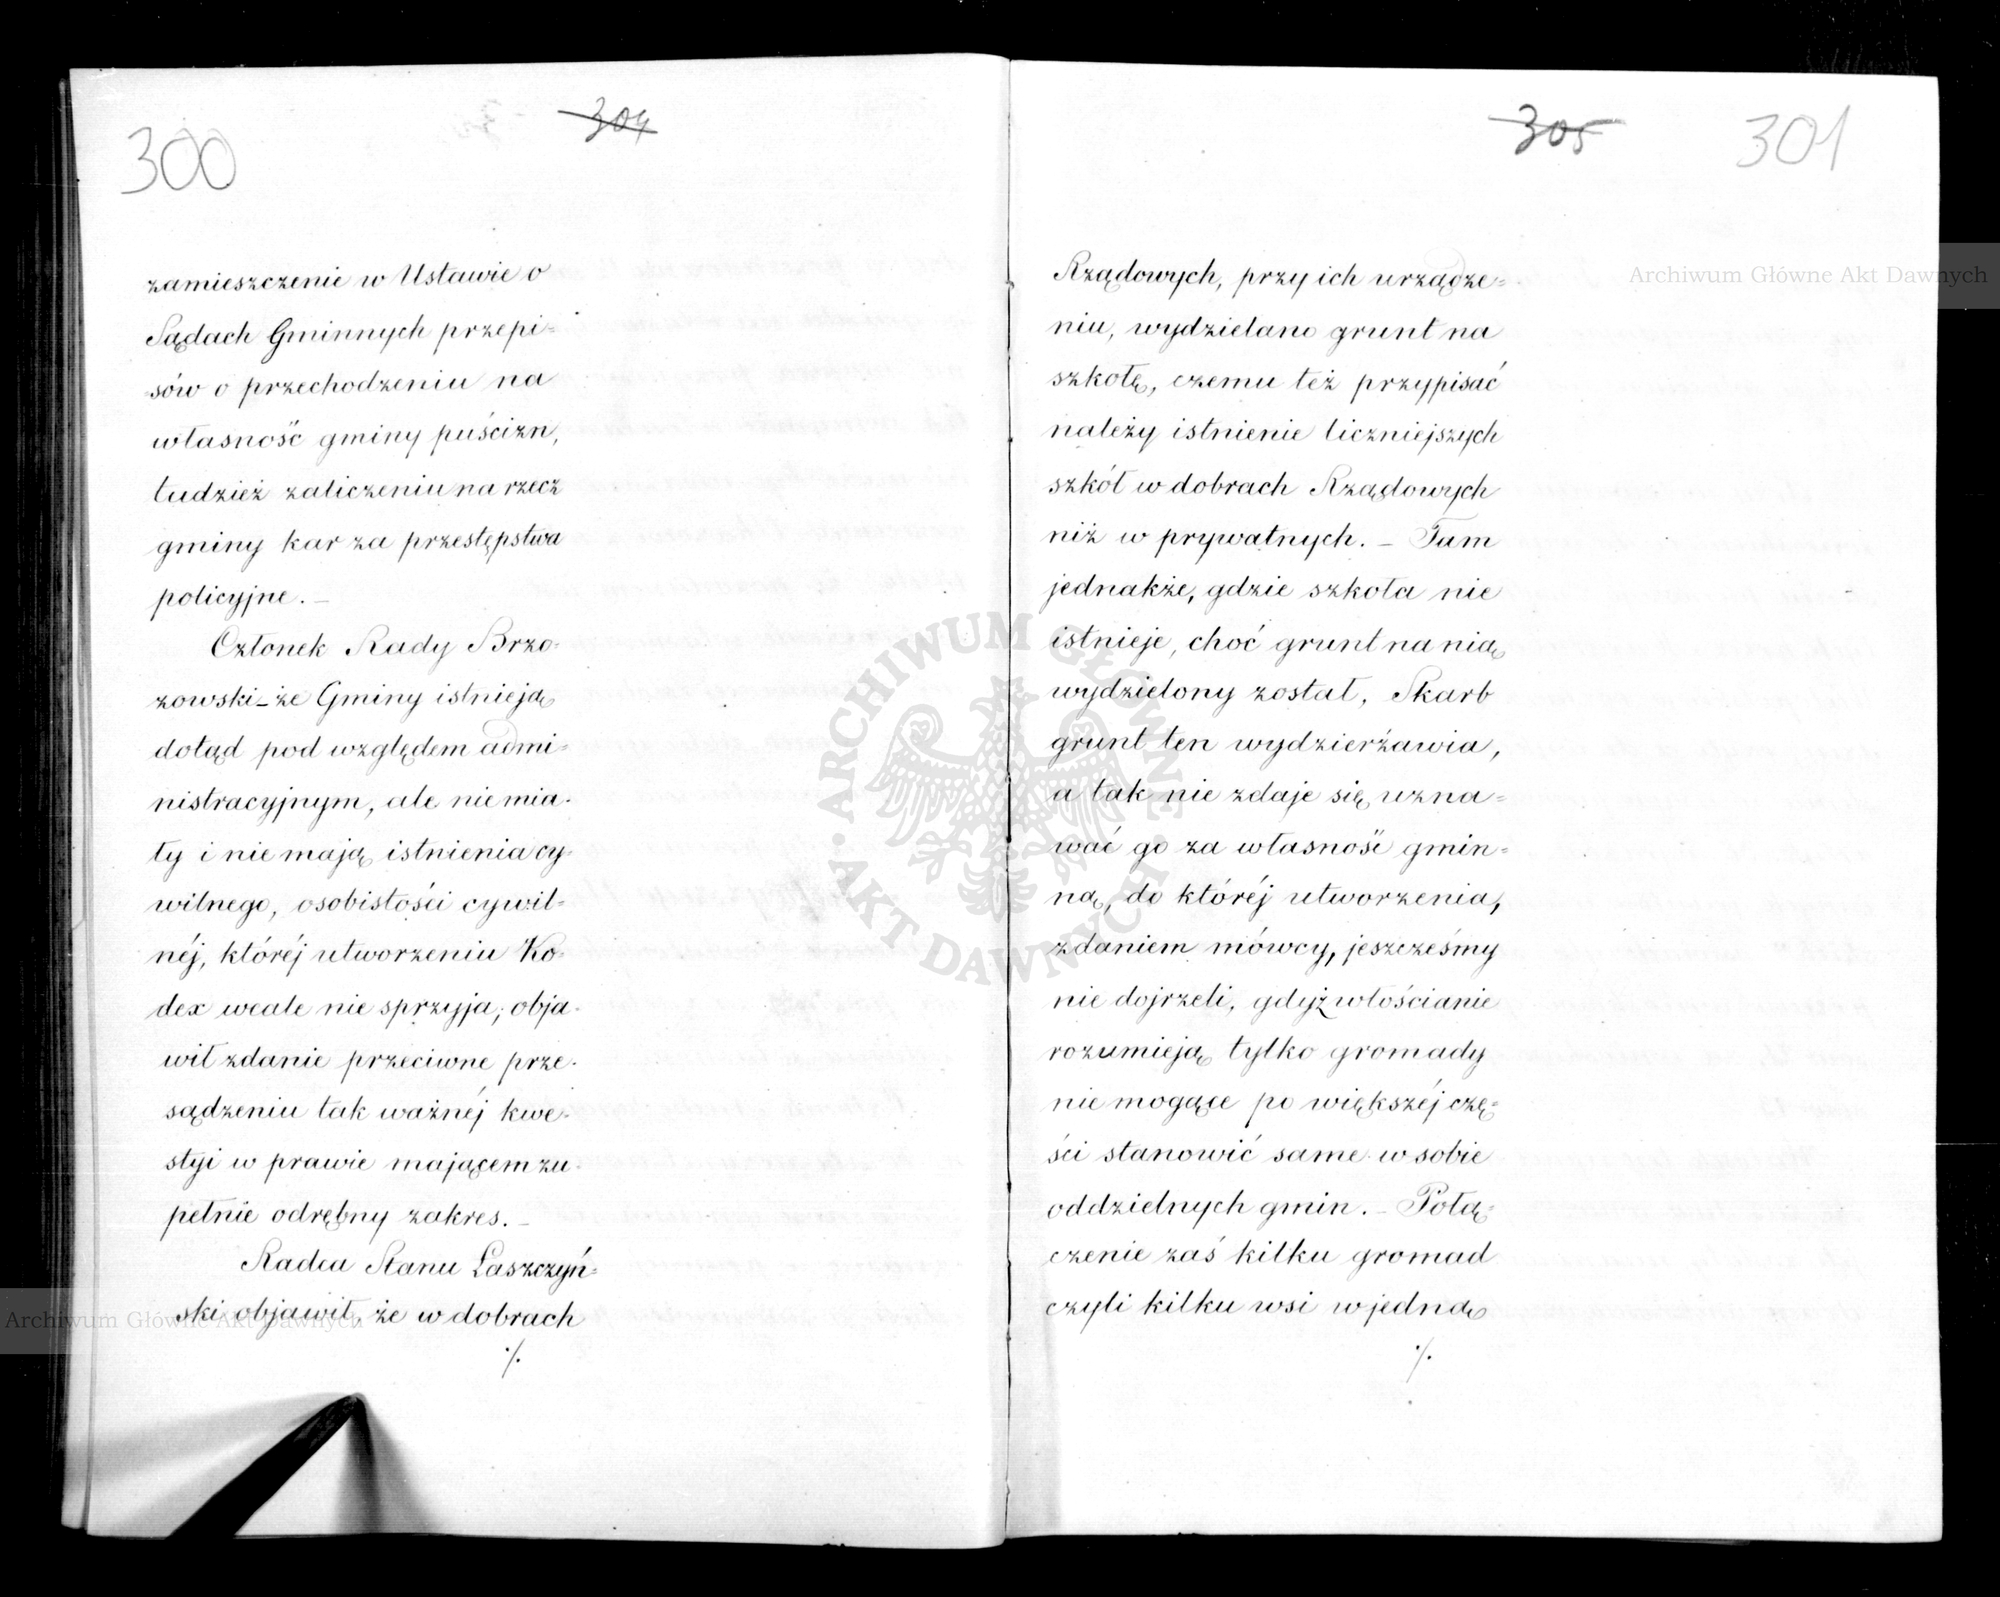 300
304
zamieszczenie w Ustawie o
Sądach Gminnych przepi=
sów o przechodzeniu na
własność gminy puścizn,
tudzież zaliczeniu na rzecz
gminy kar za przestępstwa
policyjne. –
Członek Rady Brzo=
zowski – że Gminy istnieją
dotąd pod względem admi=
nistracyjnym, ale nie mia-
ły i nie mają istnienia cy-
wilnego, osobistości cywil=
néj, któréj utworzeniu Ko-
dex wcale nie sprzyja; obja-
wił zdanie przeciwne prze-
sądzeniu tak ważnéj kwe-
styi w prawie mającem zu-
pełnie odrębny zakres. –
Radca Stanu Łaszczyń=
ski objawił, że w dobrach
./.
305
301
Rządowych, przy ich urządze=
niu, wydzielano grunt na
szkołę, czemu też przypisać
należy istnienie liczniejszych
szkół w dobrach Rządowych
niż w prywatnych. – Tam
jednakże, gdzie szkoła nie
istnieje, choć grunt na nią
wydzielony został, Skarb
grunt ten wydzierżawia,
a tak nie zdaje się uzna=
wać go za własność gmin=
ną, do któréj utworzenia,
zdaniem mówcy, jeszcześmy
nie dojrzeli, gdyż włościanie
rozumieją tylko gromady
nie mogące po większéj czę=
ści stanowić same w sobie
oddzielnych gmin. – Połą=
czenie zaś kilku gromad
czyli kilku wsi w jedną
./.
Archiwum Główne Akt Dawnych
Archiwum Główne Akt Dawnych
ARCHIWUM GŁÓWNE · AKT DAWNYCH ·